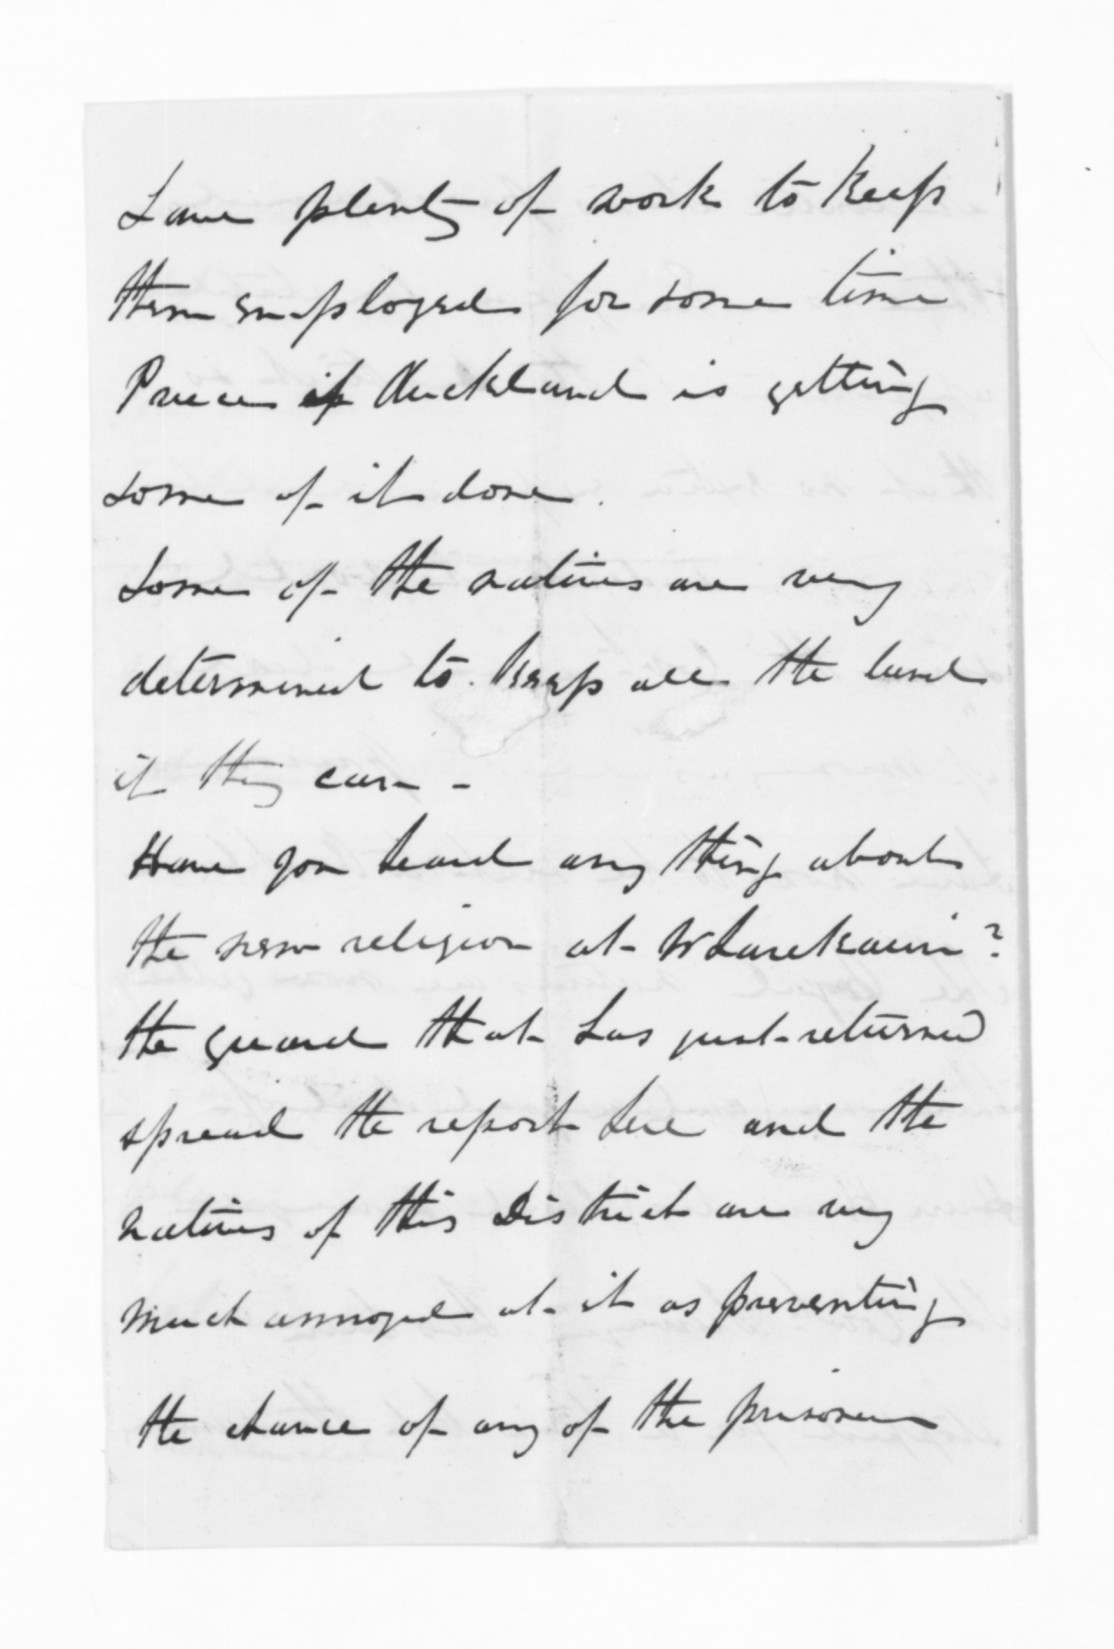 have plenty of work to keep
them employed for some time
Price of Auckland is getting
some of it done.
Some of the natives are very
determined to keep all the land
if they can -
Have you heard any thing about
the new religion at Wharekauri?
the guard that has just returned
spread the report here and the
natives of this District are very
much annoyed at it as preventing
the chance of any of the prisoners